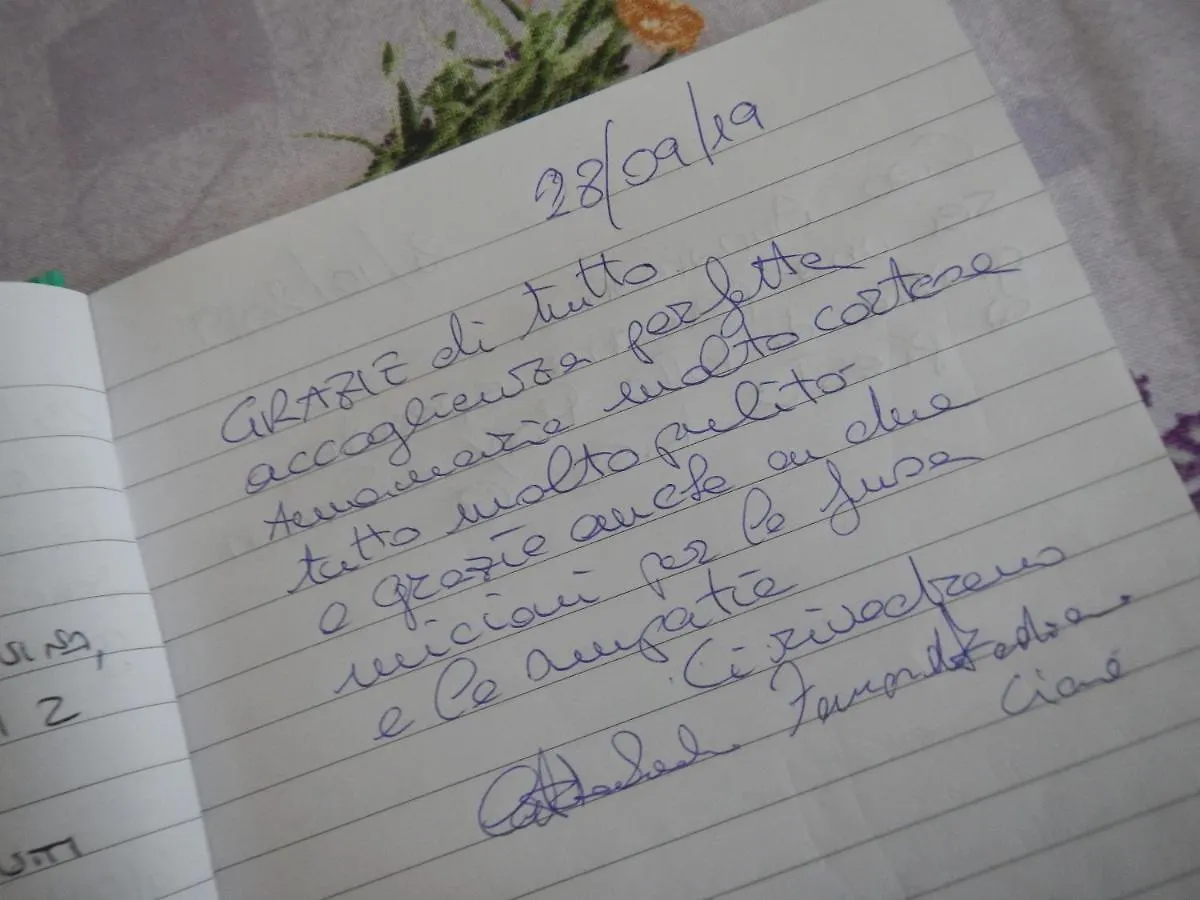 28/09/19
GRAZIE di tutto
accoglienza perfetta
Annamaria molto cortese
tutto molto pulito
e grazie anche ai due
micioni per le fusa
e le simpatie
Ci rivedremo
Ciao
2